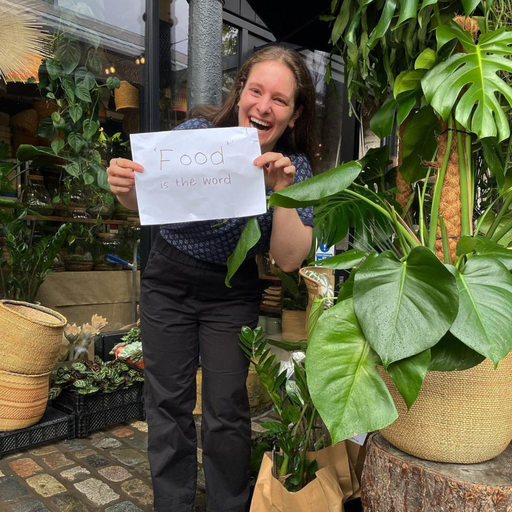 'Food'
is the word